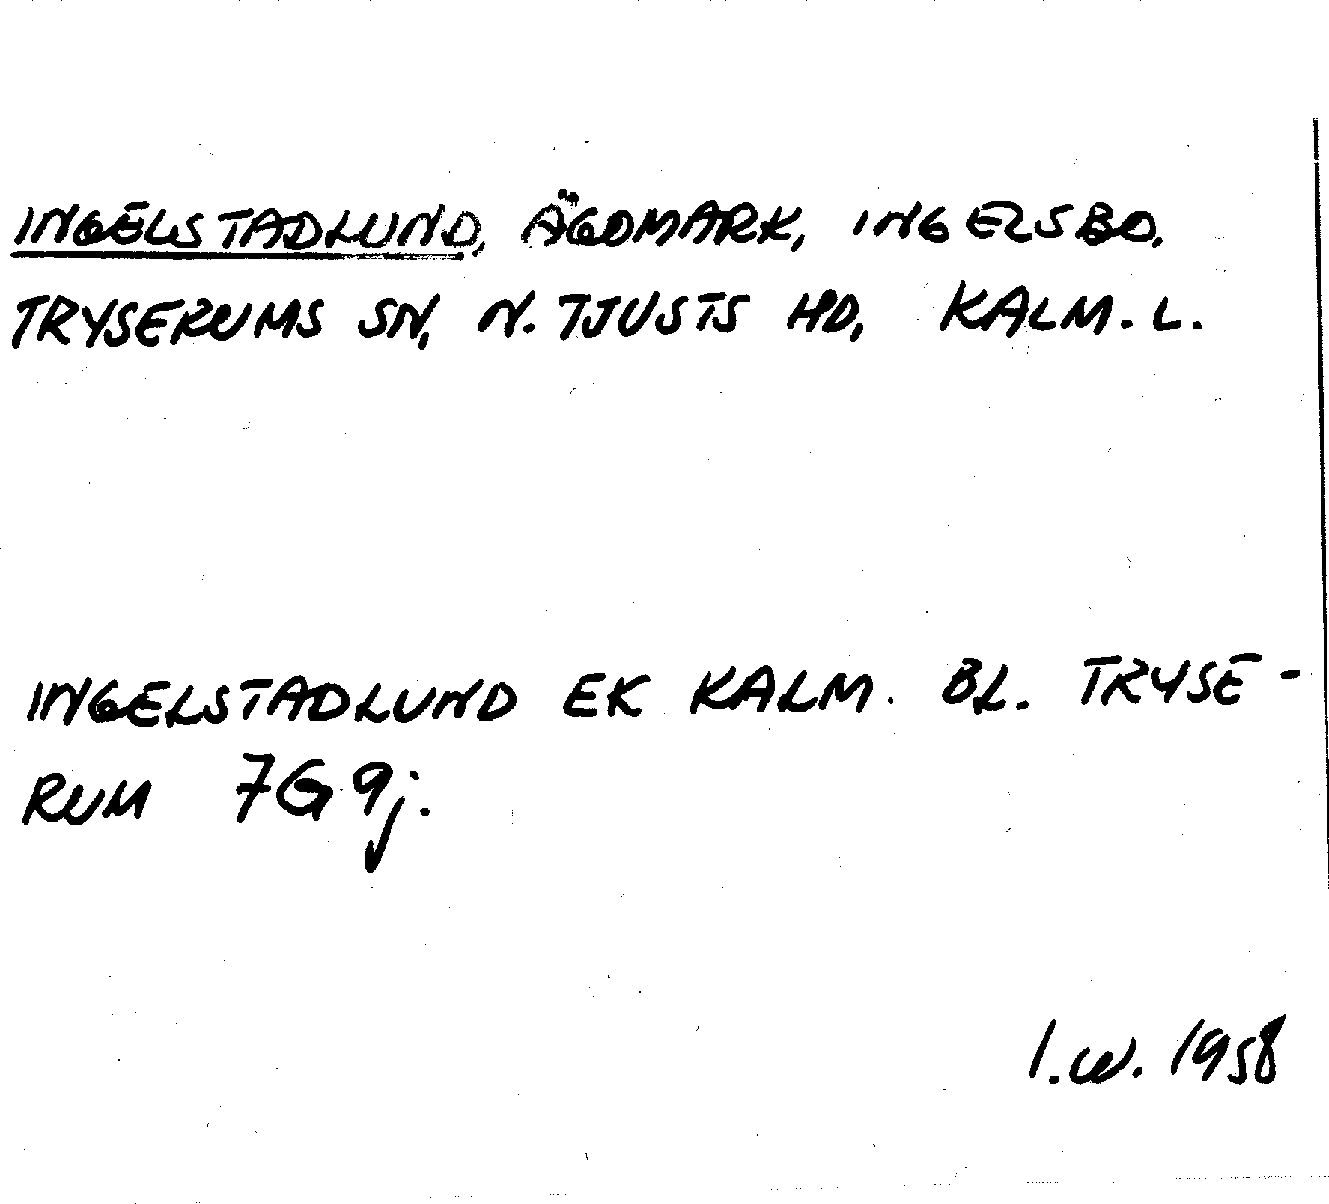 INGELSTADLUND, ÄGOMARK, INGELSBO,
TRYSERUMS SN, N. TJUSTS HD, KALM. L.
INGELSTADLUND EK KALM. BL. TRYSE-
RUM 7G 9j.
I.W. 1958